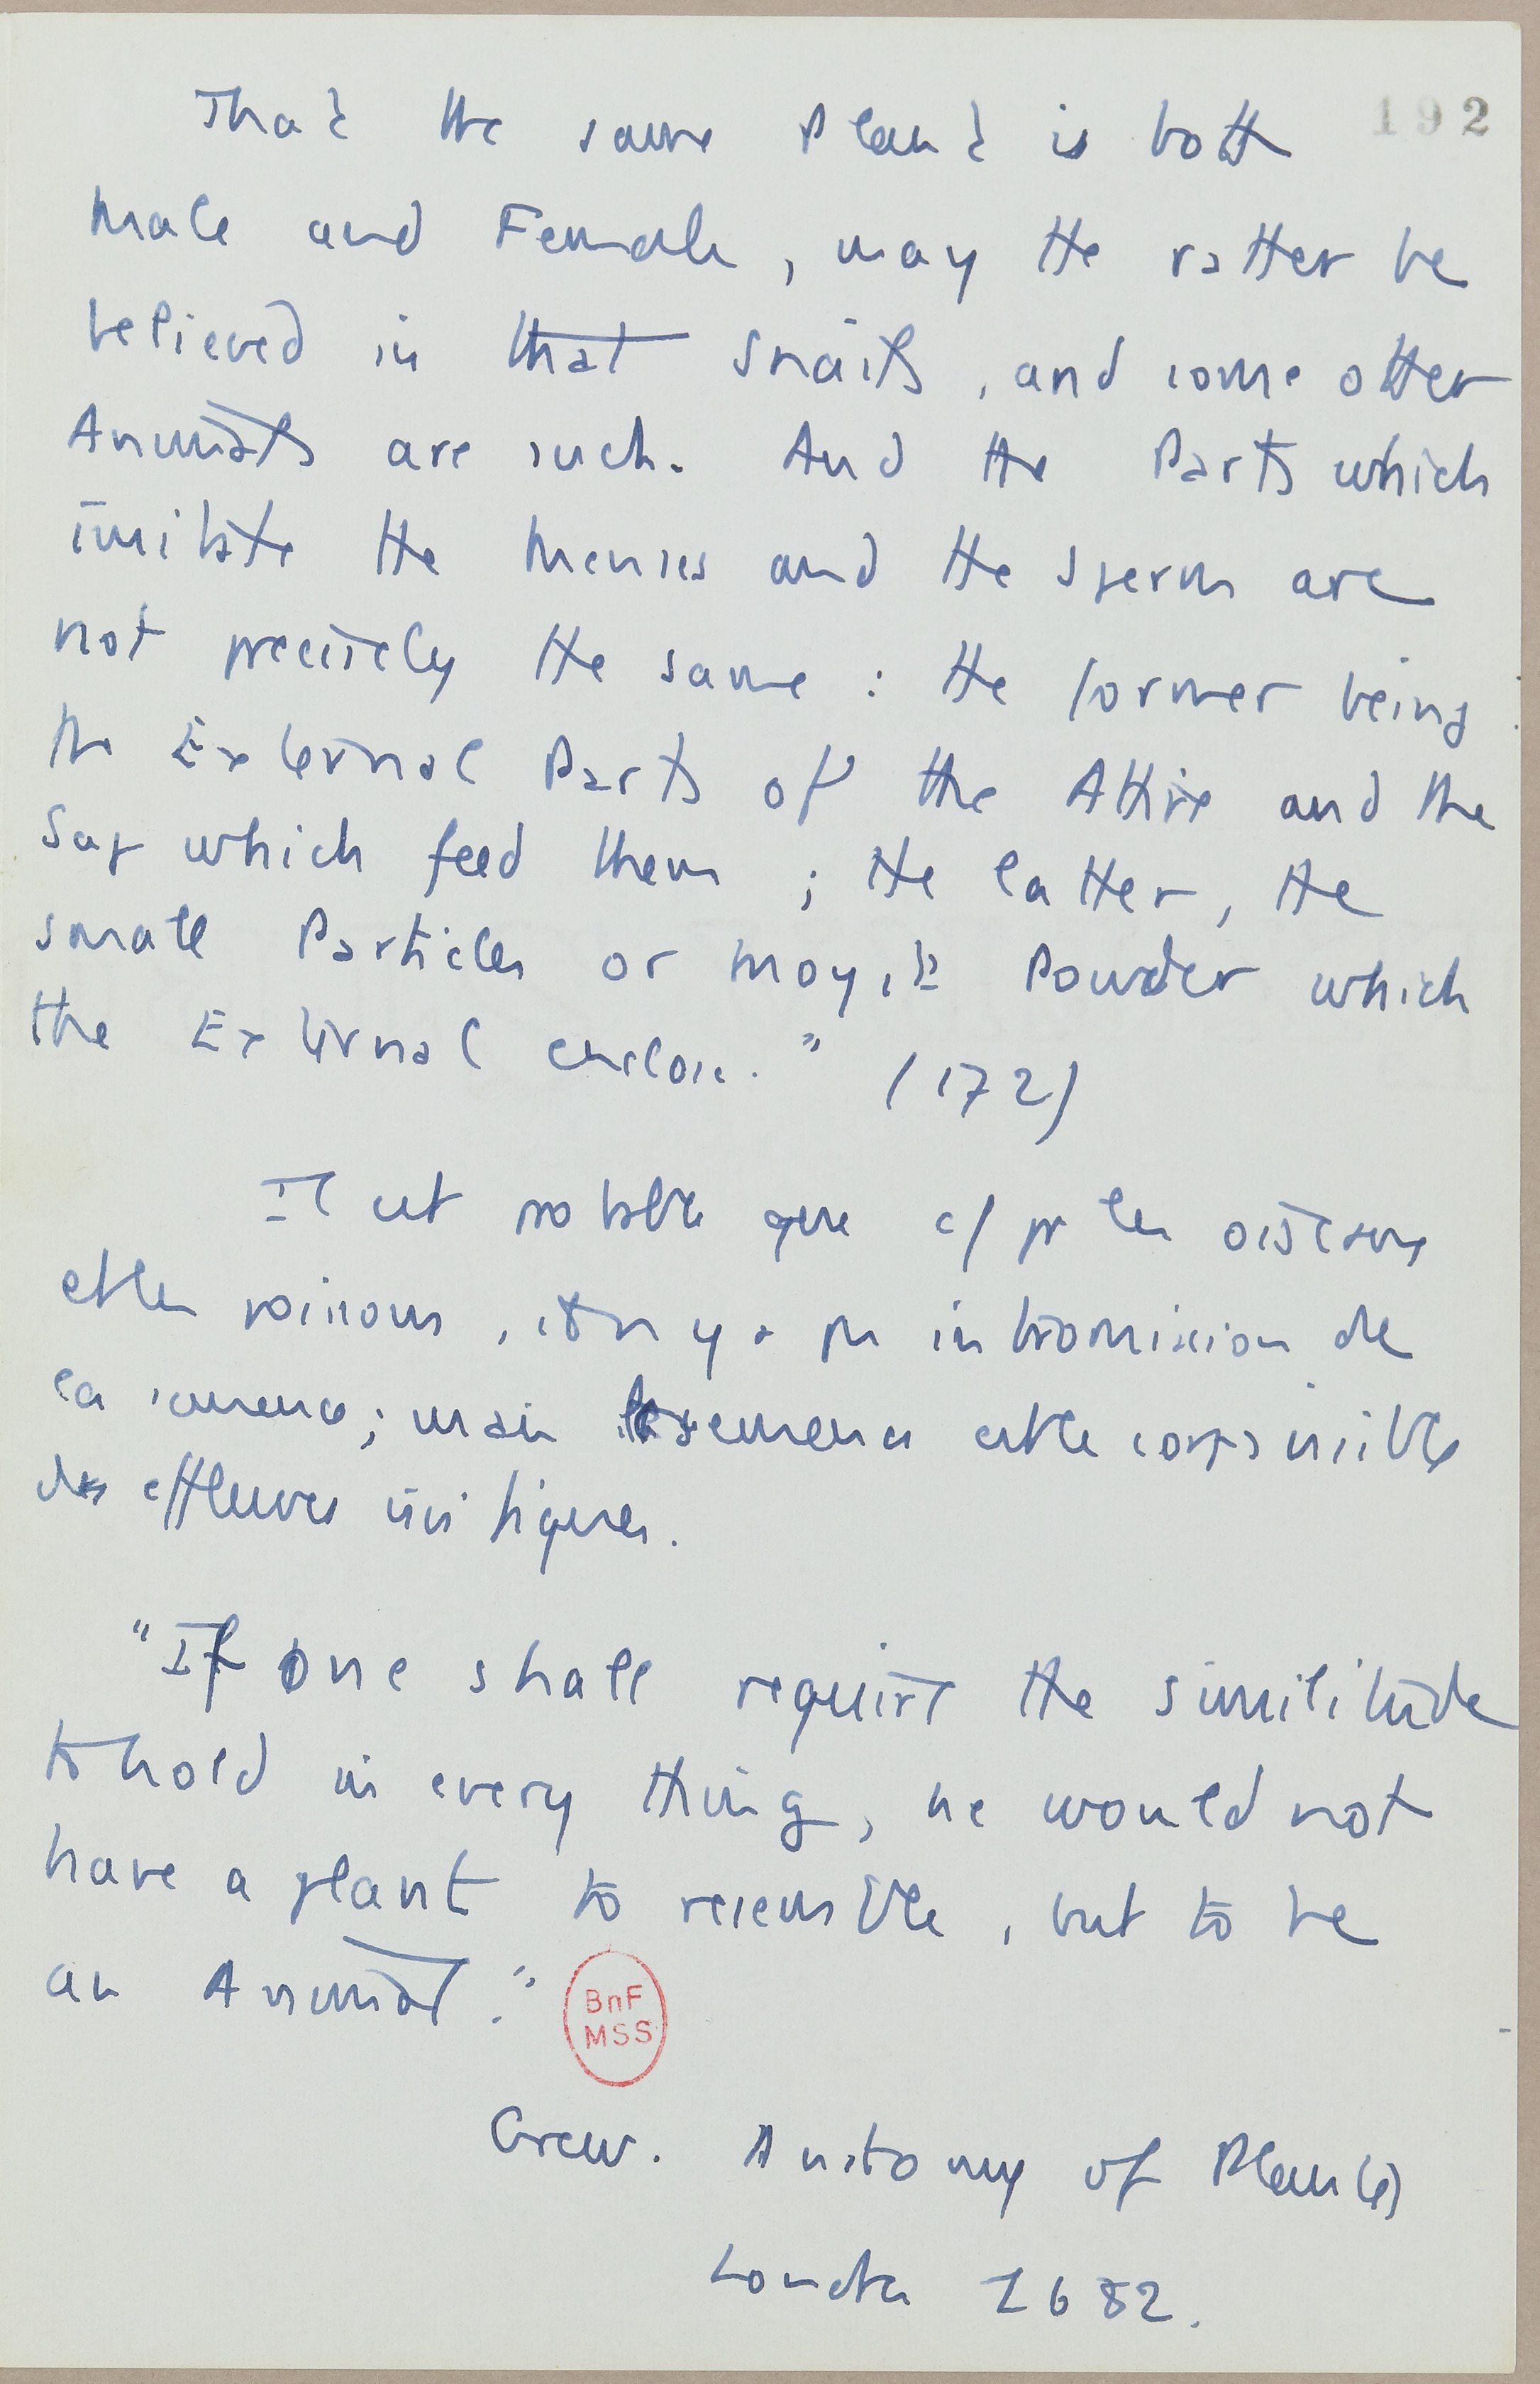 192
That the same Plant is both
Male and Female, may the rather be
believed in that Snails, and some other
Animals are such. And the Parts which
imitate the Menses and the Sperm are
not precisely the same : the former being
the External Parts of the Attire and the
Sap which feed them ; the latter, the
small Particles or moyst Powder which
the External enclose." (172)
Il est notable que c/ pr les oiseaux
et les poissons, il n'y a pas intromission de
la semence; mais la semence est le corps visible
des effluves vivifiques.
"If one shall require the similitude
to hold in every thing, he would not
have a plant to resemble, but to be
an Animal."
BnF
MSS
Grew. Anatomy of Plants
Londres 1682.